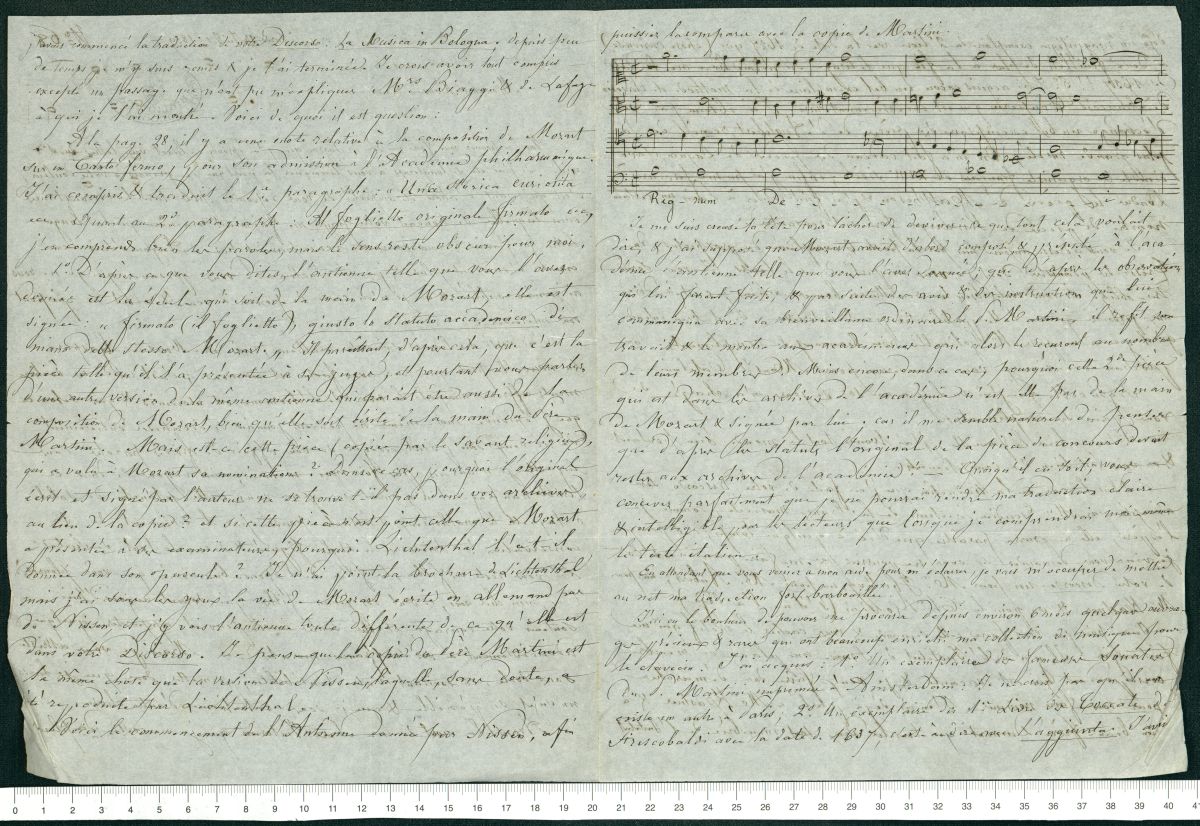 j'avais commencé la traduction de votre Discorso: La Musica in Bologna. depuis peu
de temps je m'y suis remis & je l'ai terminée. Je crois avoir tout compris
excepté un passage que n'ont pu m'expliquer Mrs Biaggi & de Lafage
à qui je l'ai montré. Voici de quoi il est question:
A la page 28, il y a une note relative à la composition de Mozart
sur un Canto fermo, pour son admission à l'Académie philharmonique.
J'ai compris & traduit le 1er paragraphe: « Una storica curiosità
ecc. Quant au 2d paragraphe: Al foglietto originale firmato ecc,
j'en comprends bien les paroles, mais le sens reste obscur pour moi.
1o D'après ce que vous dites, l'antienne telle que vous l'avez
donnée est la seule qui soit de la main de Mozart, elle est
signée: « firmato (il foglietto), giusto lo statuto accademico di
mano dello stesso Mozart. » Il paraîtrait, d'après cela, que c'est la
pièce telle qu'il l'a présentée à ses juges, et pourtant vous parlez
d'une autre version de la même antienne qui parait être aussi de la
composition de Mozart, bien qu'elle soit écrite de la main du Père
Martini. Mais est-ce cette pièce (copiée par le savant religieux)
qui a valu à Mozart sa nomination? dans ce cas, pourquoi l'original
écrit et signé par l'auteur ne se trouve-t-il pas dans vos archives
au lieu de la copie? et si cette pièce n'est point celle que Mozart
a présentée à ses examinateurs, pourquoi Lichtenthal l'a-t-il
donnée dans son opuscule? Je n'ai point la brochure de Lichtenthal
mais j'ai sous les yeux la vie de Mozart écrite en allemand par
de Nissen et j'y vois l'antienne toute différente de ce qu'elle est
dans votre Discorso. Je pense que la copie du Père Martini est
la même chose que la version de Nissen, laquelle, sans doute, a
été reproduite par Lichtenthal.
Voici le commencement de l'Antienne donnée par Nissen, afin
puissiez la comparer avec la copie de Martini:
Reg - num De -
Je me suis creusé la tête pour tâcher de deviner ce que tout cela voulait
dire, & j'ai supposé que Mozart avait d'abord composé & présenté à l'aca
démie l'antienne telle que vous l'avez donnée; que d'après les observations
qui lui furent faites, & par suite des avis & des instructions que lui
communiqua avec sa bienveillance ordinaire le P. Martini il refit son
travail & le montra aux académiciens qui alors le reçurent au nombre
de leurs membres. Mais encore, dans ce cas, pourquoi cette 2de pièce
qui est dans les archives de l'académie n'est elle pas de la main
de Mozart & signée par lui; car il me semble naturel de penser
que d'après les statuts l'original de la pièce de concours devait
rester aux archives de l'académie? — Quoiqu'il en soit, vous
concevez parfaitement que je ne pourrai rendre ma traduction claire
& intelligible pour les lecteurs que lorsque je comprendrai moi même
le texte italien.
En attendant que vous veniez à mon aide pour m'éclairer je vais m'occuper de mettre
au net ma traduction fort barbouillée.
J'ai eu le bonheur de pouvoir me procurer depuis environ 6 mois quelques ouvra-
ges précieux & rares qui ont beaucoup enrichi ma collection de musique pour
le clavecin. J'ai acquis: 1o Un exemplaire des fameuses Sonates
du P. Martini, imprimé à Amsterdam: Je ne crois pas qu'il en
existe un autre à Paris; 2o Un exemplaire du 1er Livre de Toccate de
Frescobaldi avec la date de 1637, c'est à dire avec L'aggiunta. J'avais